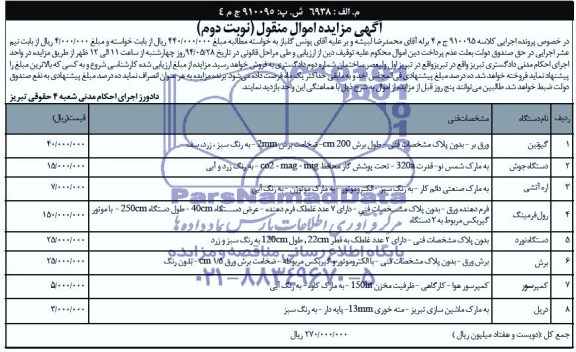 م. الف: ۶۹۳۸ ش. پ: ۹۱۰۰۹۵ ج م ۴
آگهی مزایده اموال منقول (نوبت دوم)
در خصوص پرونده اجرایی کلاسه ۹۱۰۰۹۵ ج م ۴ برله آقای محمدرضا لبیشه و بر علیه آقای یونس گلباز به خواسته مطالبه مبلغ ۴۴۰/۰۰۰/۰۰۰ ریال از بابت خواسته و مبلغ ۴/۰۰۰/۰۰۰ ریال از بابت نیم
عشر اجرایی در حق صندوق دولت بعلت عدم پرداخت دین اموال محکوم علیه توقیف دین ارزیابی و طی مراحل قانونی در تاریخ ۹۴/۰۵/۲۸ روز چهارشنبه از ساعت ۱۱ الی ۱۲ ظهر از طریق مزایده در واحد
اجرای احکام مدنی دادگستری تبریز واقع در تبریز اول ولیعصر ساختمان شماره دوم دادگستری به فروش خواهد رسید. مزایده از مبلغ ارزیابی شده کارشناسی شروع و به کسی که بالاترین مبلغ را
پیشنهاد نماید فروخته خواهد شد. ده درصد مبلغ پیشنهادی فی المجلس اخذ و به مابقی حداکثر یک ماه فرصت داده می شود برنده مزایده به هر عنوان انصراف نماید ده درصد مبلغ پیشنهادی به نفع صندوق
دولت ضبط خواهد شد. طالبین می توانند پنج روز قبل از مزایده از اموال به شرح ذیل با هماهنگی این واحد بازدید نمایند.
دادورز اجرای احکام مدنی شعبه ۴ حقوقی تبریز
ردیف نام دستگاه مشخصات فنی قیمت (ریال)
۱ گیوتین ورق بر - بدون پلاک مشخصات فنی - طول برش 200 cm - ضخامت برش 2mm - به رنگ سبز، زرد، سف ۴۰/۰۰۰/۰۰۰
۲ دستگاه جوش به مارک شمس نو - قدرت 320a - تحت پوشش گاز محافظ co2 - mag - mig - به رنگ زرد و آبی ۱۵/۰۰۰/۰۰۰
۳ اره آتشی به مارک صنعتی دائم کار - به رنگ سبز - الکتروموتور - به مارک موتوژن - به رنگ آبی ۷/۰۰۰/۰۰۰
۴ رول فرمینگ فرم دهنده ورق - بدون پلاک مشخصات فنی - دارای ۷ عدد غلطک فرم دهنده - عرض دستگاه 40cm - طول دستگاه 250cm - با موتور گیربکس مربوط به ۲ دستگاه ۱۵۰/۰۰۰/۰۰۰
۵ دستگاه نورد بدون پلاک مشخصات فنی - دارای ۲ عدد غلطک به قطر 22cm، طول 120cm به رنگ سبز و زرد ۲۵/۰۰۰/۰۰۰
۶ برش برش ورق - بدون پلاک مشخصات فنی - با الکتروموتور و گیربکس مربوطه - ضخامت برش ورق 1/5 cm - بدون رنگ ۲۵/۰۰۰/۰۰۰
۷ کمپرسور کمپرسور هوا - کارگاهی - ظرفیت مخزن 150lit - به مارک کاوه - به رنگ آبی ۵/۰۰۰/۰۰۰
۸ دریل به مارک ماشین سازی تبریز - مته خوری 13mm - پایه دار - به رنگ سبز ۳/۰۰۰/۰۰۰
جمع کل: (دویست و هفتاد میلیون ریال) ۲۷۰/۰۰۰/۰۰۰ ریال
ParsNamadData
مرکز فرآوری اطلاعات پارس نماد داده ها
پایگاه اطلاع رسانی مناقصه و مزایده
۰۲۱-۸۸۳۴۹۶۷۰-۵